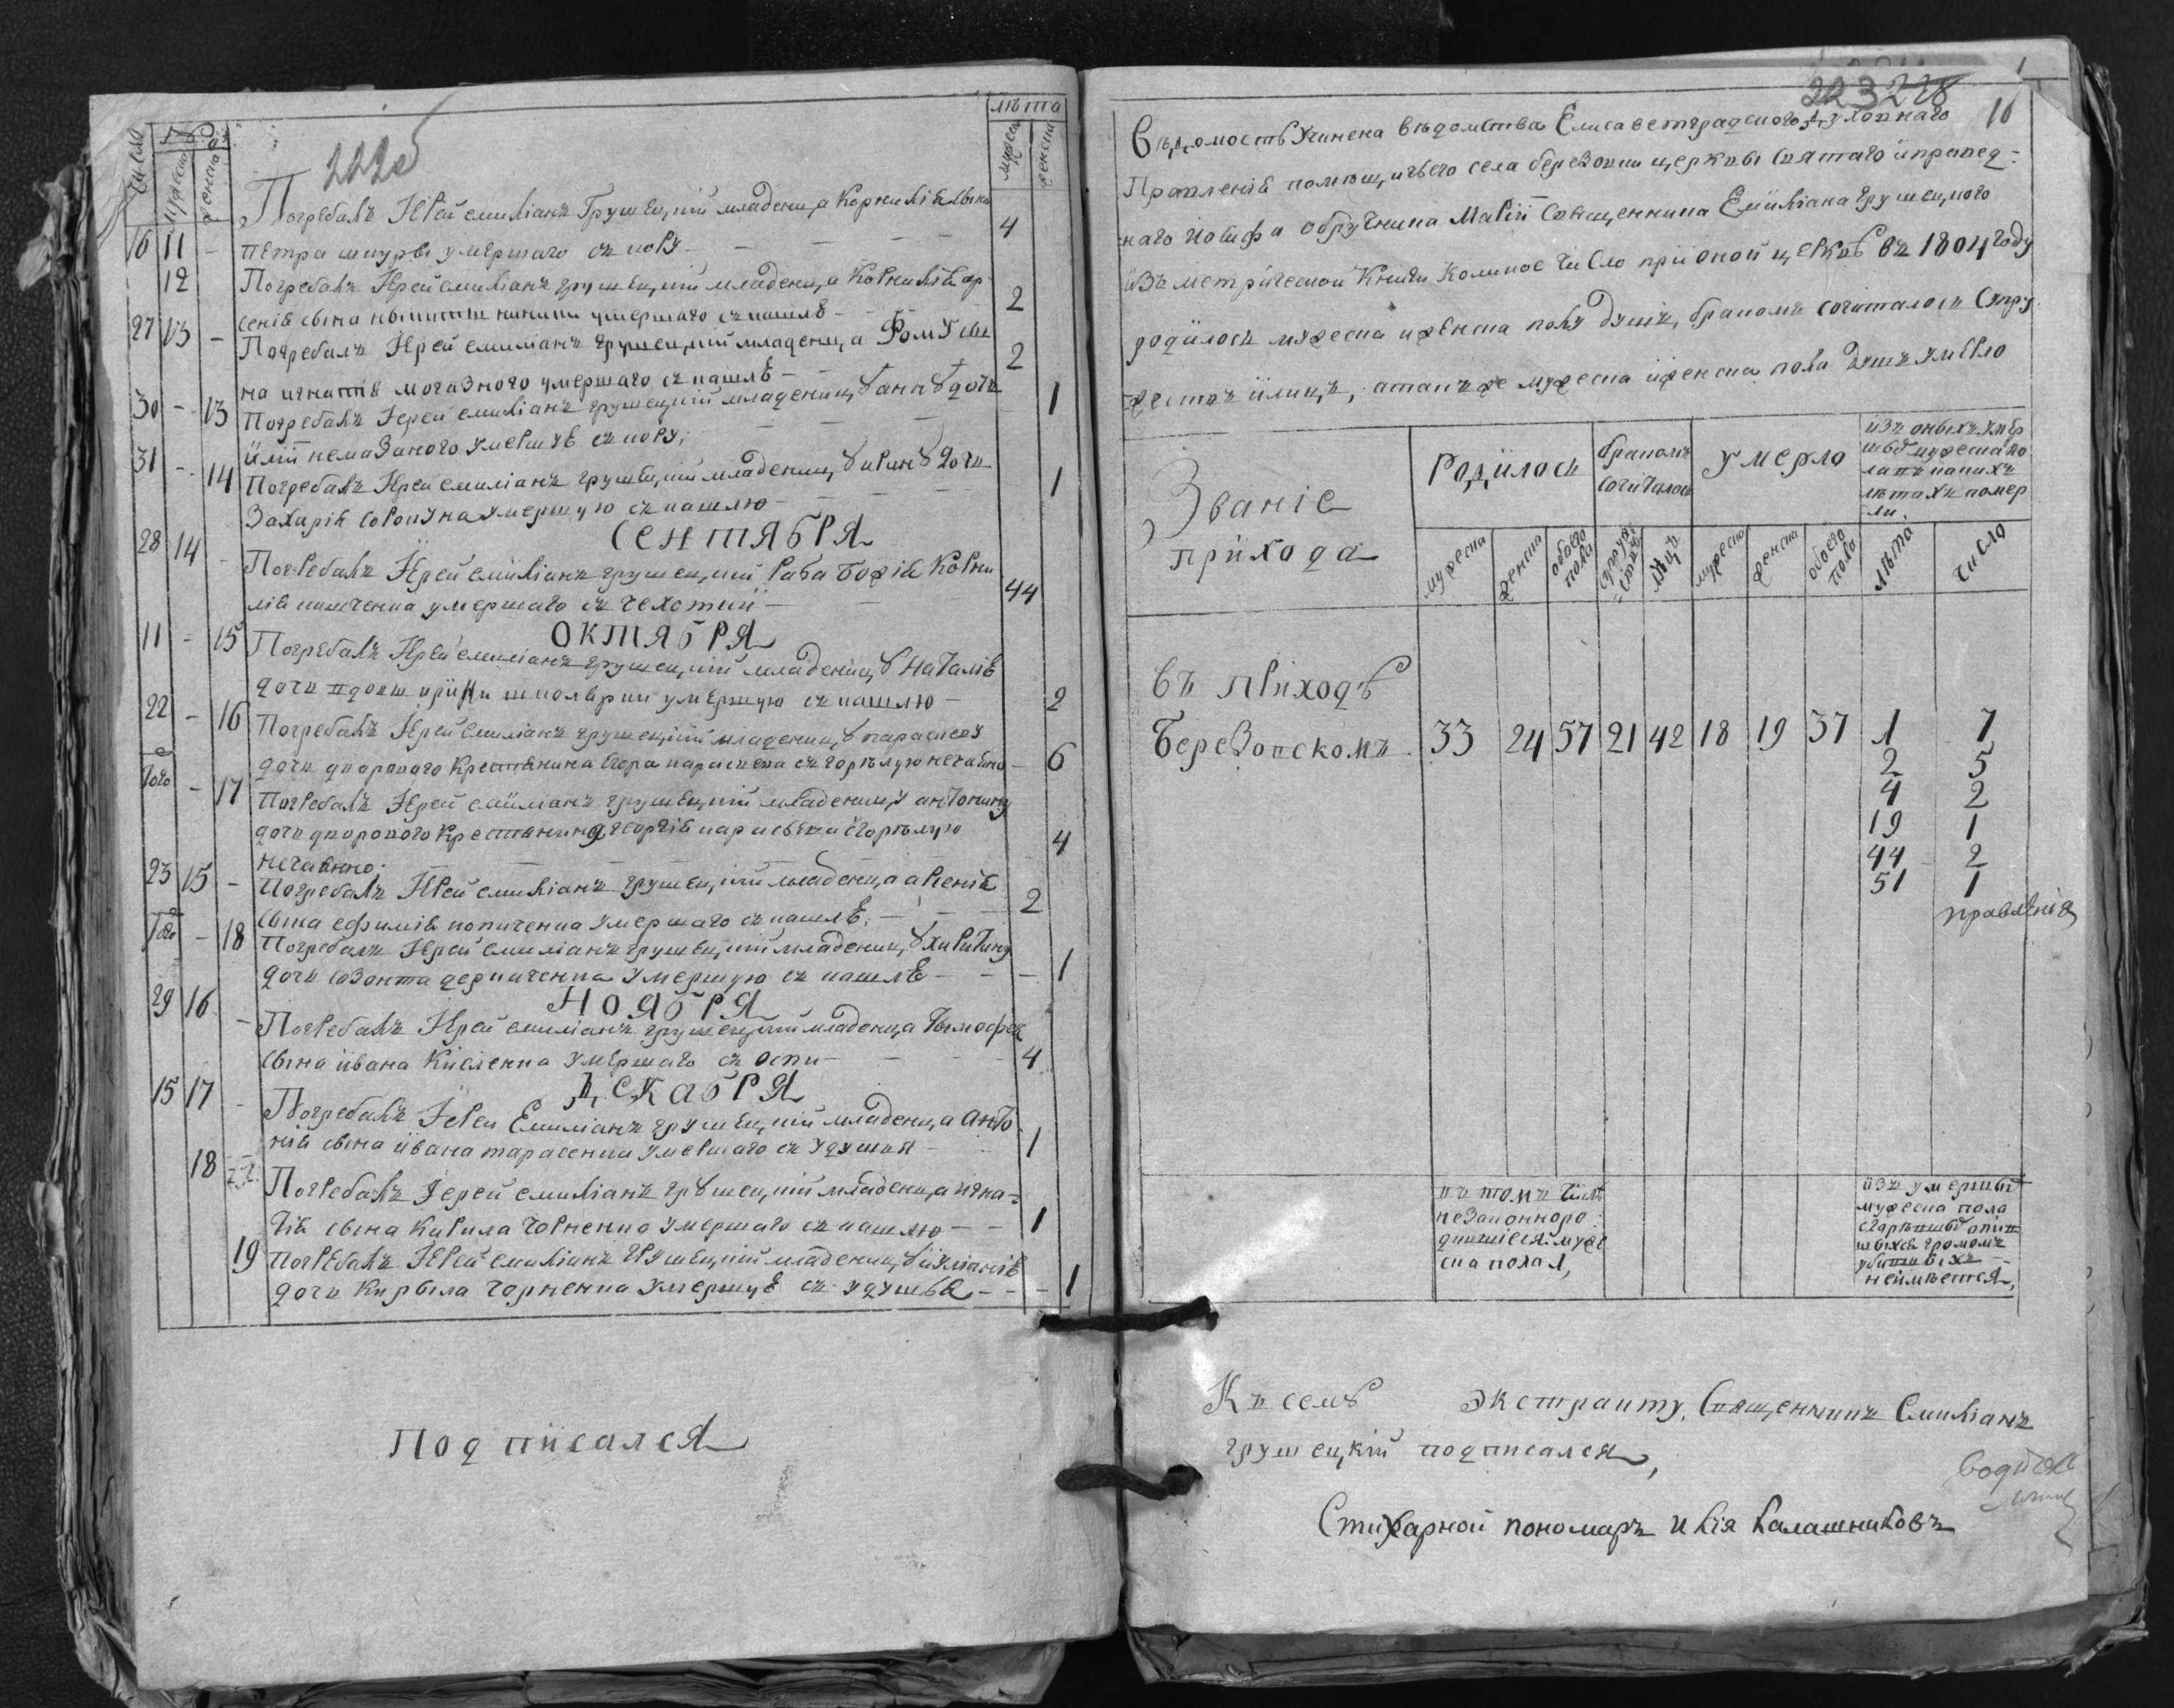 число
муска
женска
222об
лѣта
мужеска
женска
Погребалъ Іерей емиліанъ Грушецкій младенца Корниліѧ сына
16 11 - петра шкуры умершаго съ кору - 4
12 Погребалъ Іерей емиліанъ грушецкій младенца Корниліѧ ар
сеніѧ сына умершаго съ кашлѣ - 2
27 13 - Погребалъ Іерей емиліанъ грушецкій младенца Фому сы
на игнатіѧ могазного умершаго съ кашлѣ - 2
30 - 13 Погребалъ Іерей емиліанъ грушецкій младеницꙋ аннꙋ дочь
немазаного умершуѣ съ кору; 1
31 - 14 Погребалъ Іерей емиліанъ грушецкій младеницꙋ иринꙋ дочь
Захаріѧ умершую съ кашлю - 1
СЕНТЯБРЯ
28 14 - Погребалъ Іерей емиліанъ грушецкій раба божіѧ Корни
ліѧ умершаго съ чехоткй - 44
ОКТЯБРЯ
11 - 15 Погребалъ Іерей емиліанъ грушецкій младеницꙋ наталіѣ
дочь вдовы умершую съ кашлю - 2
22 - 16 Погребалъ Іерей емиліанъ грушецкій младеницꙋ параскеу
дочь дворового крестѧнина егора параскева съгорѣлую нечаѧно - 6
Того - 17 Погребалъ Іерей емиліанъ грушецкій младеницу антонину
дочь дворового крестѧнина георгіѧ параскева сгорѣлую
нечаѧнно. 4
23 15 - Погребалъ Іерей емиліанъ грушецкій младенца арсеніѧ
сына ефиміѧ умершаго съ кашлѣ. - 2
Того - 18 Погребалъ Іерей емиліанъ грушецкій младеницꙋ харитину
дочь созонта умершую съ кашлѣ - 1
НОЯБРЯ
29 16 - Погребалъ Іерей емиліанъ грушецкій младенца тымофеѧ
сына ивана Кисленка умершаго съ оспи - 4
ДЕКАБРЯ
15 17 - Погребалъ Іерей Емиліанъ грушецкій младенца анто
ніѧ сына ивана тарасенка умершаго съ удушья - 1
18 Погребалъ Іерей емиліанъ грꙋшецкій младенца игна-
тіѧ сына Кирила Чорненка умершаго съ кашлю - - 1
19 Погребалъ Іерей емиліанъ грушецкій младеницꙋ иуліаніѣ
дочь Кирыла чорненка умершуѣ съ удушья - - - 1
Подписался
223 228
10
Вѣдомость Учинена вѣдомства Елисаветградского духовнаго
Правленіѧ помѣщичьего села березовки церквы свѧтаго и правед-
наго иосифа обручника Маріи Священника Емиліана грушецкого
изъ метрической Книги Коликое Число при оной церквѣ въ 1804 году
родилось мужеска и женска полу душъ, бракомъ сочиталось супру
жествъ и лицъ, атакъже мужеска и женска пола душъ умерло
Званіе
прихода
Родилось
бракомъ
сочиталось
Умерло
изъ оныхъ умер
шыхъ мужеска по
ла въ какихъ
лѣтахъ помер
ли.
мужеска
женска
обоего
пола
супруже
ствъ
лицъ
мужеска
женска
обоего
пола
лѣта
число
Въ приходѣ
Березовскомъ 33 24 57 21 42 18 19 37 1 7
2 5
4 2
19 1
44 2
51 1
правленія
въ томъ числѣ
незаконноро
дившіеся муже
ска пола 1,
изъ умершых
мужеска пола
сгорѣвшых
громомъ
убитыхъ
неимѣется,
Къ семꙋ экстракту, Священникъ Емиліанъ
грушецкій подписался,
Стихарной пономаръ Илія Калашниковъ